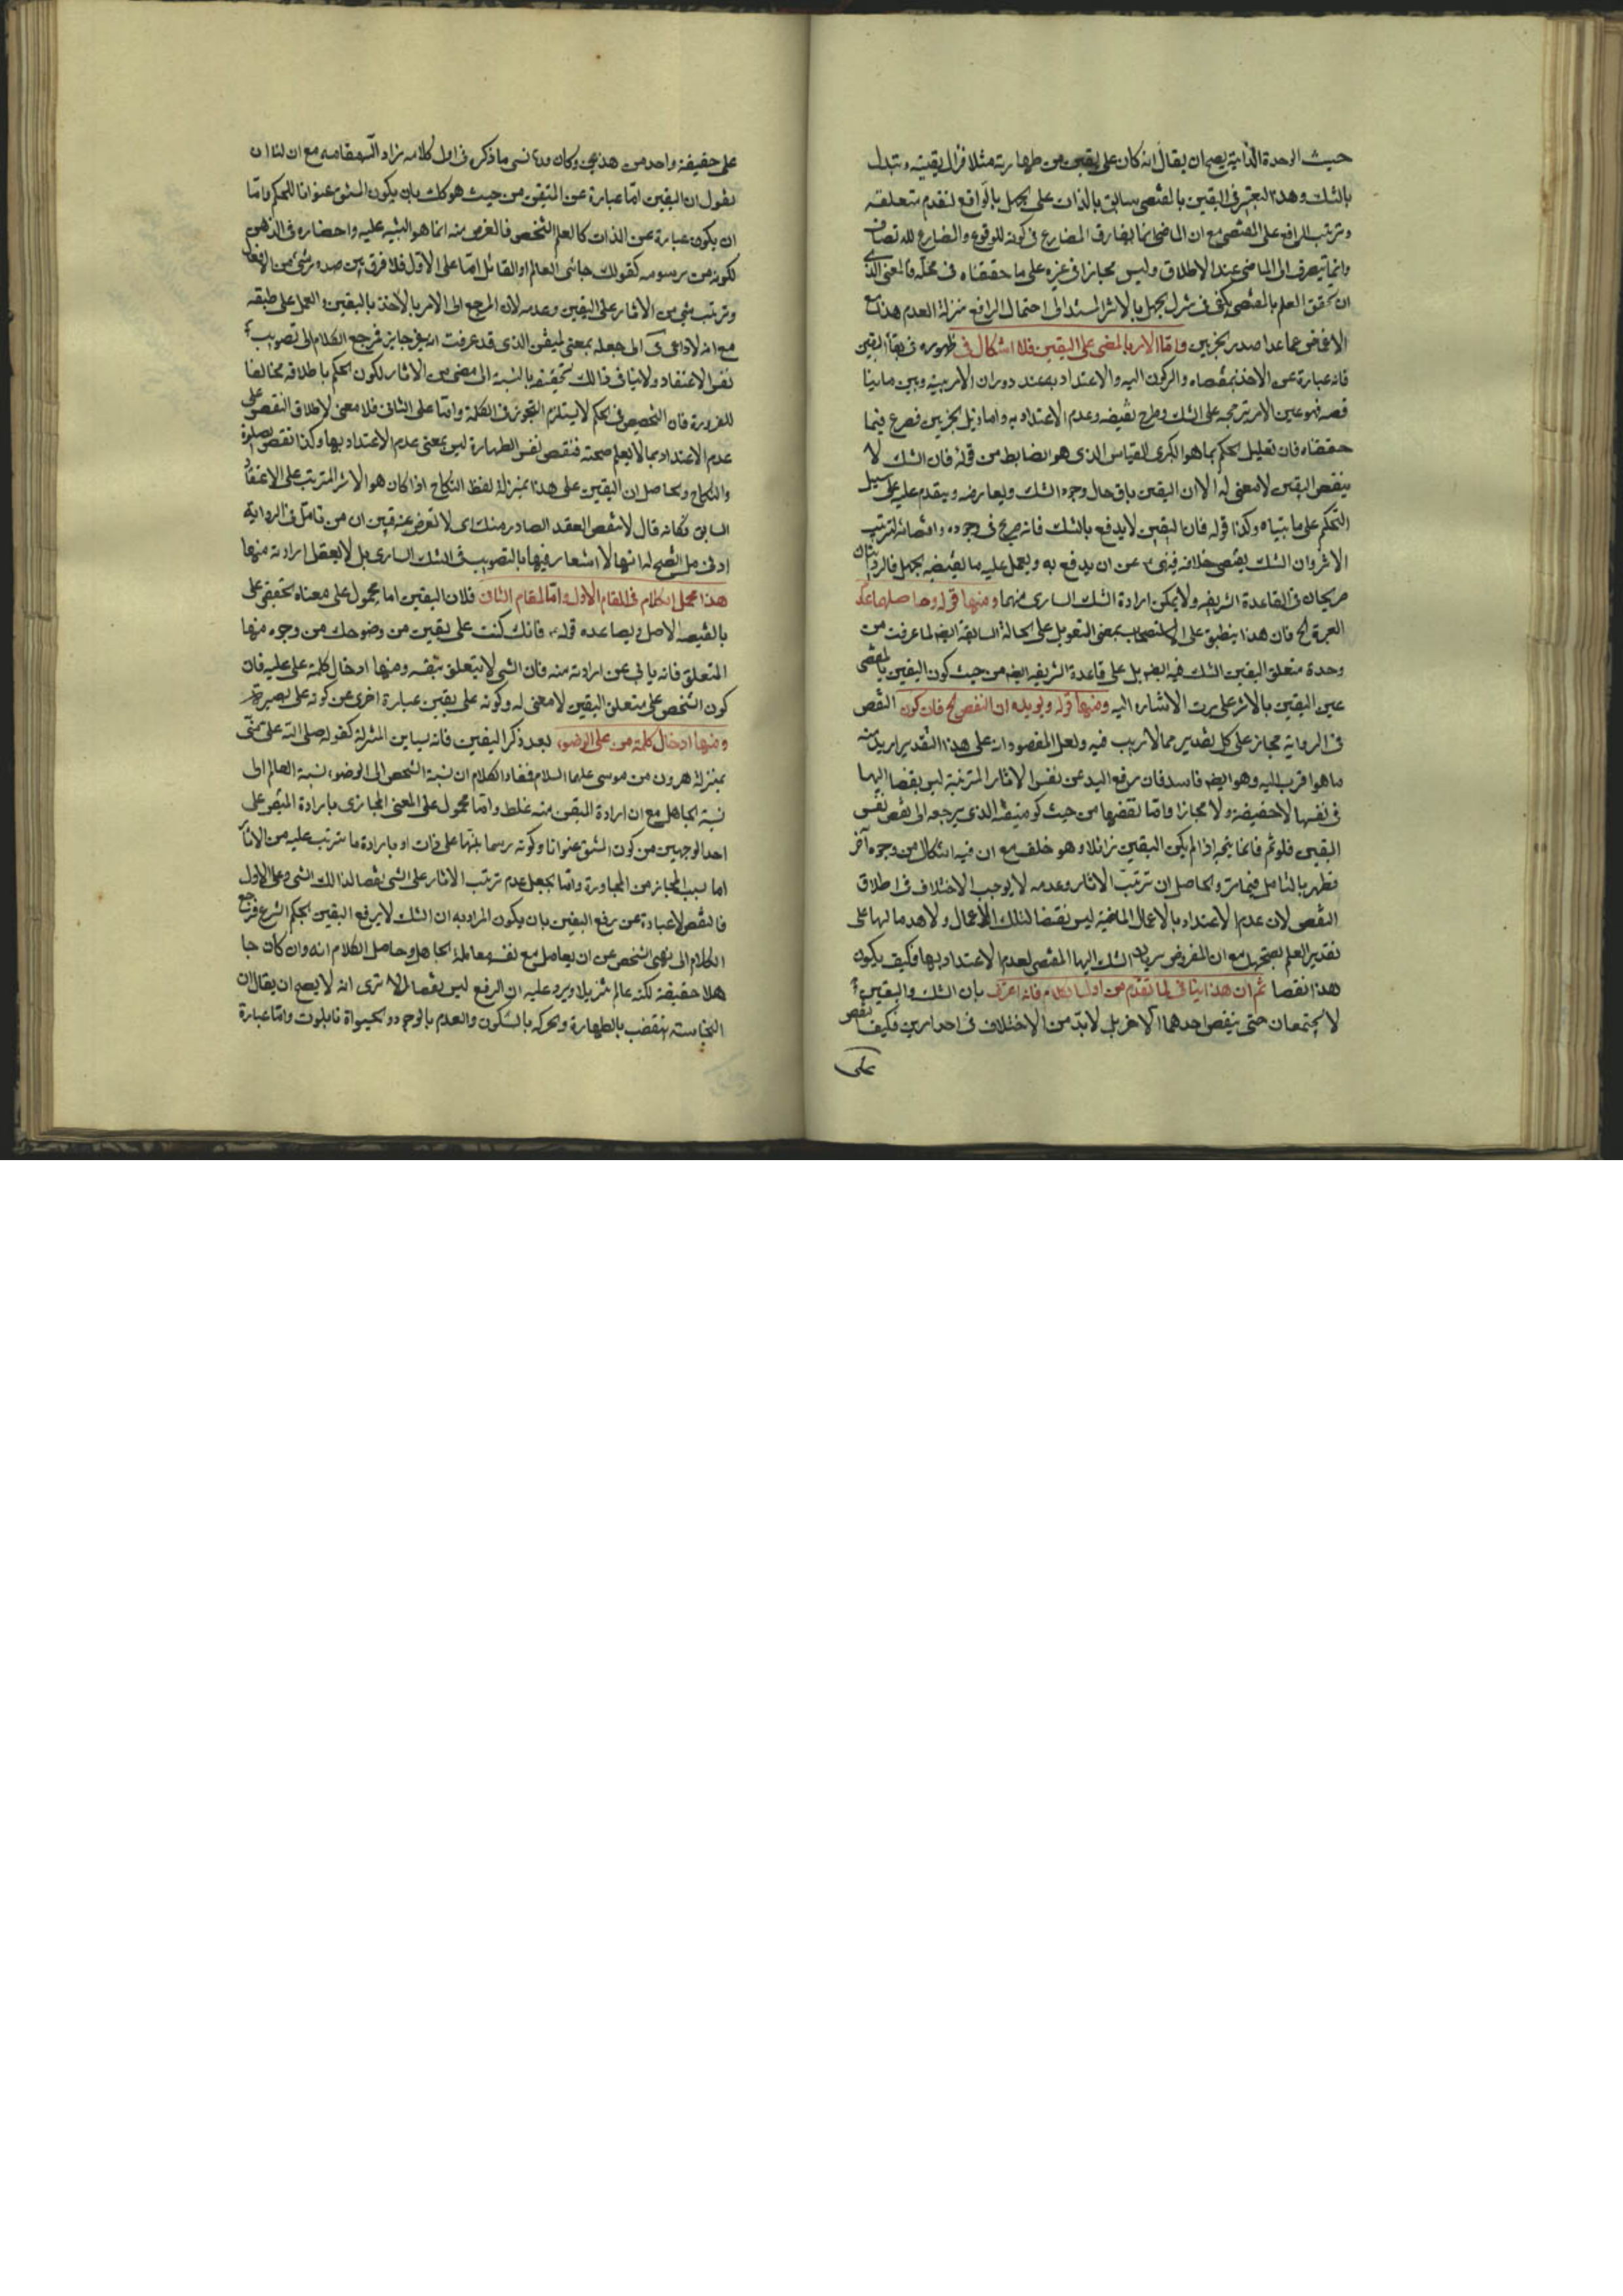 حيث الوحدة الذاتية يصح ان يقال انه كان على يقين من طهارته مثلا فزال يقينه وتبدل
بالشك وهذا التعبير في اليقين بالمقتضى سابق بالذات على الجهل بالواقع لتقدم متعلقه
وترتب الرافع على المقتضى مع ان الماضى انما يفارق المضارع في كونه للوقوع والمضارع للاتصاف
وانما ينصرف الى الماضى عند الاطلاق وليس مجازا في غيره على ما حققناه في محله فالمعنى
ان تحقق العلم بالمقتضى يكفى في تنزيل الجهل بالاثر المستند الى احتمال الرافع منزلة العدم هذا مع
الاغماض عما عدا صدر الخبرين واما الامر بالمضى على اليقين فلا اشكال في ظهوره في بقاء اليقين
فانه عبارة عن الاخذ بمقتضاه والركون اليه والاعتداد به عند دوران الامر بينه وبين ما ينا
قضه فهو عين الامر بترجيحه على الشك وطرح نقيضه وعدم الاعتداد به واما ذيل الخبرين فصرح فيما
حققناه فان تعليل الحكم بما هو الكبرى للقياس الذى هو الضابط من قوله فان الشك لا
ينقض اليقين لا معنى له الا ان اليقين باق حال وجود الشك ويعارضه ويقدم عليه على سبيل
التحكم على ما بيناه وكذا قوله فان اليقين لا يدفع بالشك فانه صريح في وجوده واقتضائه لترتب
الاثر وان الشك يقتضى خلافه فنهى عن ان يدفع به ويعمل عليه ما يقتضيه الجهل فالروايتان
صريحان في القاعدة الشريفة ولا يمكن ارادة الشك السارى منهما ومنها قوله وحاصلها عدم
العبرة الخ فان هذا ينطبق على الاستصحاب بمعنى التعويل على الحالة السابقة ايضا لما عرفت من
وحدة متعلق اليقين والشك فيه ايضا بل على قاعدة الشريفة ايضا من حيث كون اليقين بالمقتضى
عين اليقين بالاثر على ما مرت الاشارة اليه ومنها قوله ويؤيده ان النقض الخ فان كون النقض
في الرواية مجازا على كل تقدير مما لا ريب فيه ولعل المقصود انه على هذا التقدير اريد منه
ما هو اقرب اليه وهو ايضا فاسد فان رفع اليد عن نفس الاثار المترتبة ليس نقضا اليها
في نفسها لا حقيقة ولا مجازا واما نقضها من حيث كونها متيقنة الذى مرجعه الى نقض نفس
اليقين فلو تم فانما يتجه اذا لم يكن اليقين زائلا وهو خلف مع ان فيه اشكال من وجوه آخر
تظهر بالتامل فيما مر والحاصل ان ترتب الاثار وعدمه لا يوجب الاختلاف في اطلاق
النقض لان عدم الاعتداد بالاعمال الماضية ليس نقضا لتلك الاعمال ولا هدما لها على
تقدير العلم بصحتها مع ان المفروض سريان الشك اليها المقتضى لعدم الاعتداد بها فكيف يكون
هذا نقضا ثم ان هذا ينافى لما تقدم من اول كلامه فانه اعترف بان الشك واليقين
لا يجتمعان حتى ينقض احدهما الاخر بل لا بد من الاختلاف في احد امرين فكيف نقض
على
على حقيقة واحد من هذين وكانه قد نسى ما ذكره في اول كلامه زاد الله مقامه مع ان لنا ان
نقول ان اليقين اما عبارة عن المتيقن من حيث هو كك بان يكون المشتق عنوانا للحكم واما
ان يكون عبارة عن الذات كالعلم الشخص فالغرض منه انما هو التنبيه عليه واحضاره في الذهن
لكونه من رسومه كقولك جائنى العالم او القائل اما على الاول فلا فرق بين صدور شئ من الافعال
وترتب شئ من الاثار على اليقين وعدمه لان المرجع الى الامر بالاخذ باليقين والعمل على طبقه
مع انه لا داعى الى جعله بمعنى المتيقن الذى قد عرفت انه غير جايز فمرجع الكلام الى تصويب
نفس الاعتقاد ولا ينافى ذلك تحقيقه بالنسبة الى مضى من الاثار لكون الحكم باطلاقه مخالفا
للضرورة فان التخصيص في الحكم لا يستلزم التجوز في الكلمة واما على الثانى فلا معنى لاطلاق النقض على
عدم الاعتداد بما لا يعلم صحته فنقض نفس الطهارة ليس بمعنى عدم الاعتداد بها وكذا نقض الصلوة
والنكاح والحاصل ان اليقين على هذا بمنزلة لفظ النكاح اذا كان هو الاثر المترتب على الاعتقاد
السابق فكانه قال لا تنقض العقد الصادر منك اى لا تعرض عنه فتبين ان من تامل في الرواية
ادنى تامل اتضح له انها لا اشعار فيها بالتصويب في الشك السارى بل لا يعقل ارادته منها
هذا مجمل الكلام في المقام الاول واما المقام الثانى فلان اليقين اما محمول على معناه الحقيقى على
ما يقتضيه الاصل ويساعده قوله فانك كنت على يقين من وضوءك من وجوه منها
المتعلق فانه يابى عن ارادته منه فان الشئ لا يتعلق بنفسه ومنها ادخال كلمة على عليه فان
كون الشخص على متعلق اليقين لا معنى له وكونه على يقين عبارة اخرى عن كونه على بصيرة
ومنها ادخال كلمة من على الوضوء بعد ذكر اليقين فانه يباين المنزلة كقوله صلى الله على منى
بمنزلة هرون من موسى عليهما السلام فمفاد الكلام ان نسبة الشخص الى الوضوء نسبة العالم الى
نسبة الجاهل مع ان ارادة المتيقن منه غلط واما محمول على المعنى المجازى بارادة المتيقن على
احد الوجهين من كون المشتق عنوانا وكونه رسما منبها على ذات او بارادة ما يترتب عليه من الاثار
اما بسبب المجاز من المجاورة واما بجعل عدم ترتب الاثار على الشئ نقضا لذلك الشئ وعلى الاول
فالنقض لا عبارة عن رفع اليقين بان يكون المراد به ان الشك لا يرفع اليقين بحكم الشرع فمرجع
الكلام الى نهى الشخص عن ان يعامل مع نفسه معاملة الجاهل وحاصل الكلام انه وان كان جا
هلا حقيقة لكنه عالم تنزيلا ويرد عليه ان الرفع ليس نقضا الا ترى انه لا يصح ان يقال ان
النجاسة تنقض بالطهارة والحركة بالسكون والعدم بالوجود والحيوة بالموت واما عبارة